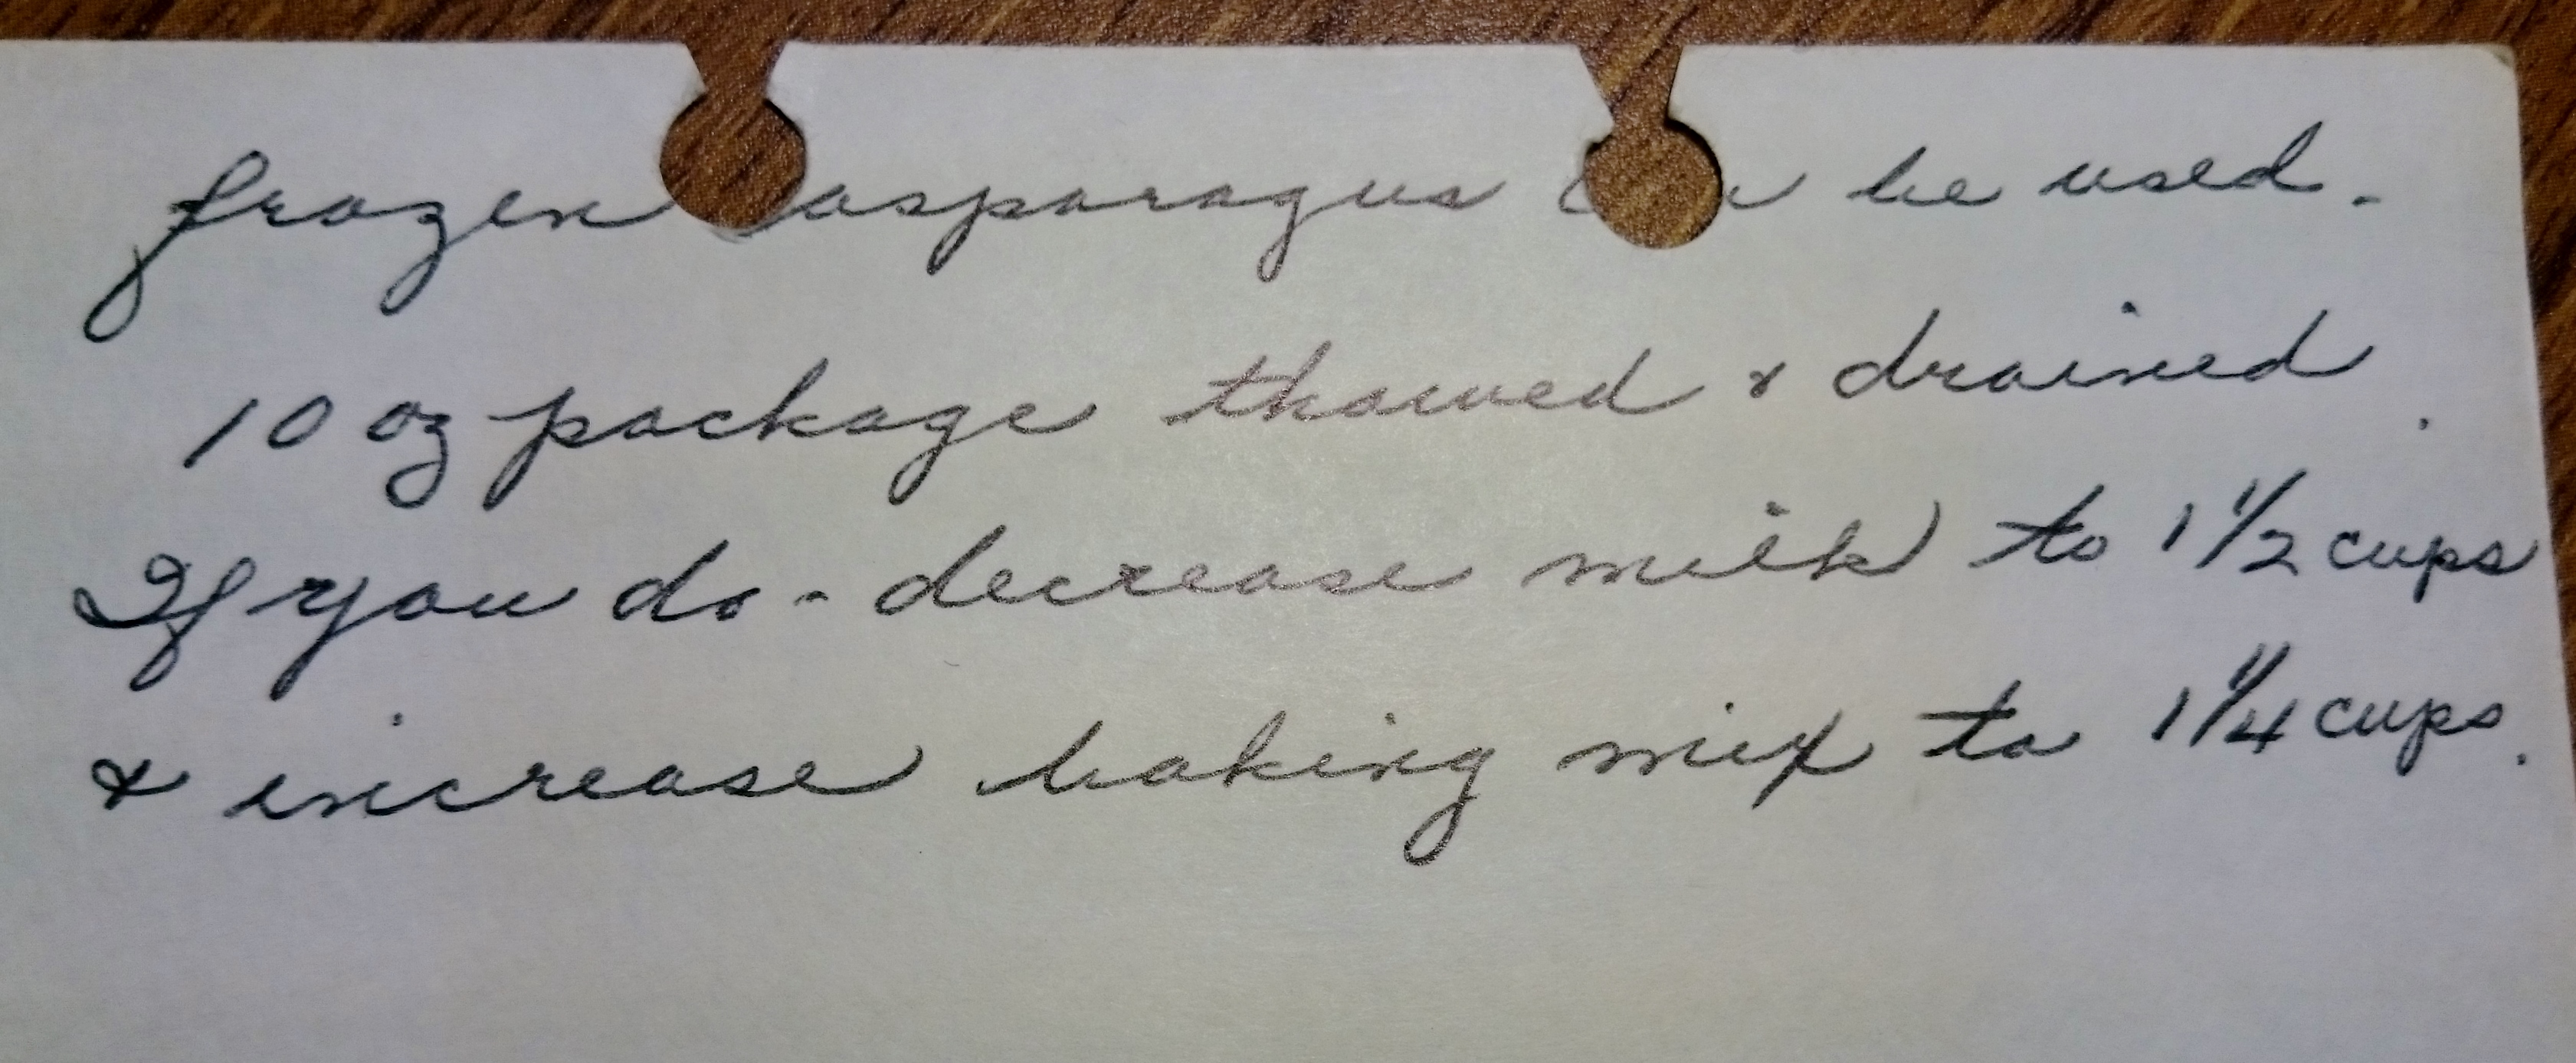 frozen asparagus can be used.
10 oz package thawed & drained.
If you do - decrease milk to 1 1/2 cups
& increase baking mix to 1 1/4 cups.